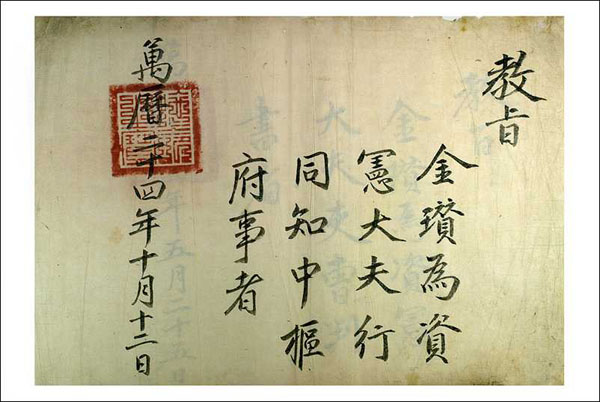 教旨
金瓚為資
憲大夫行
同知中樞
府事者
萬曆二十四年十月十二日